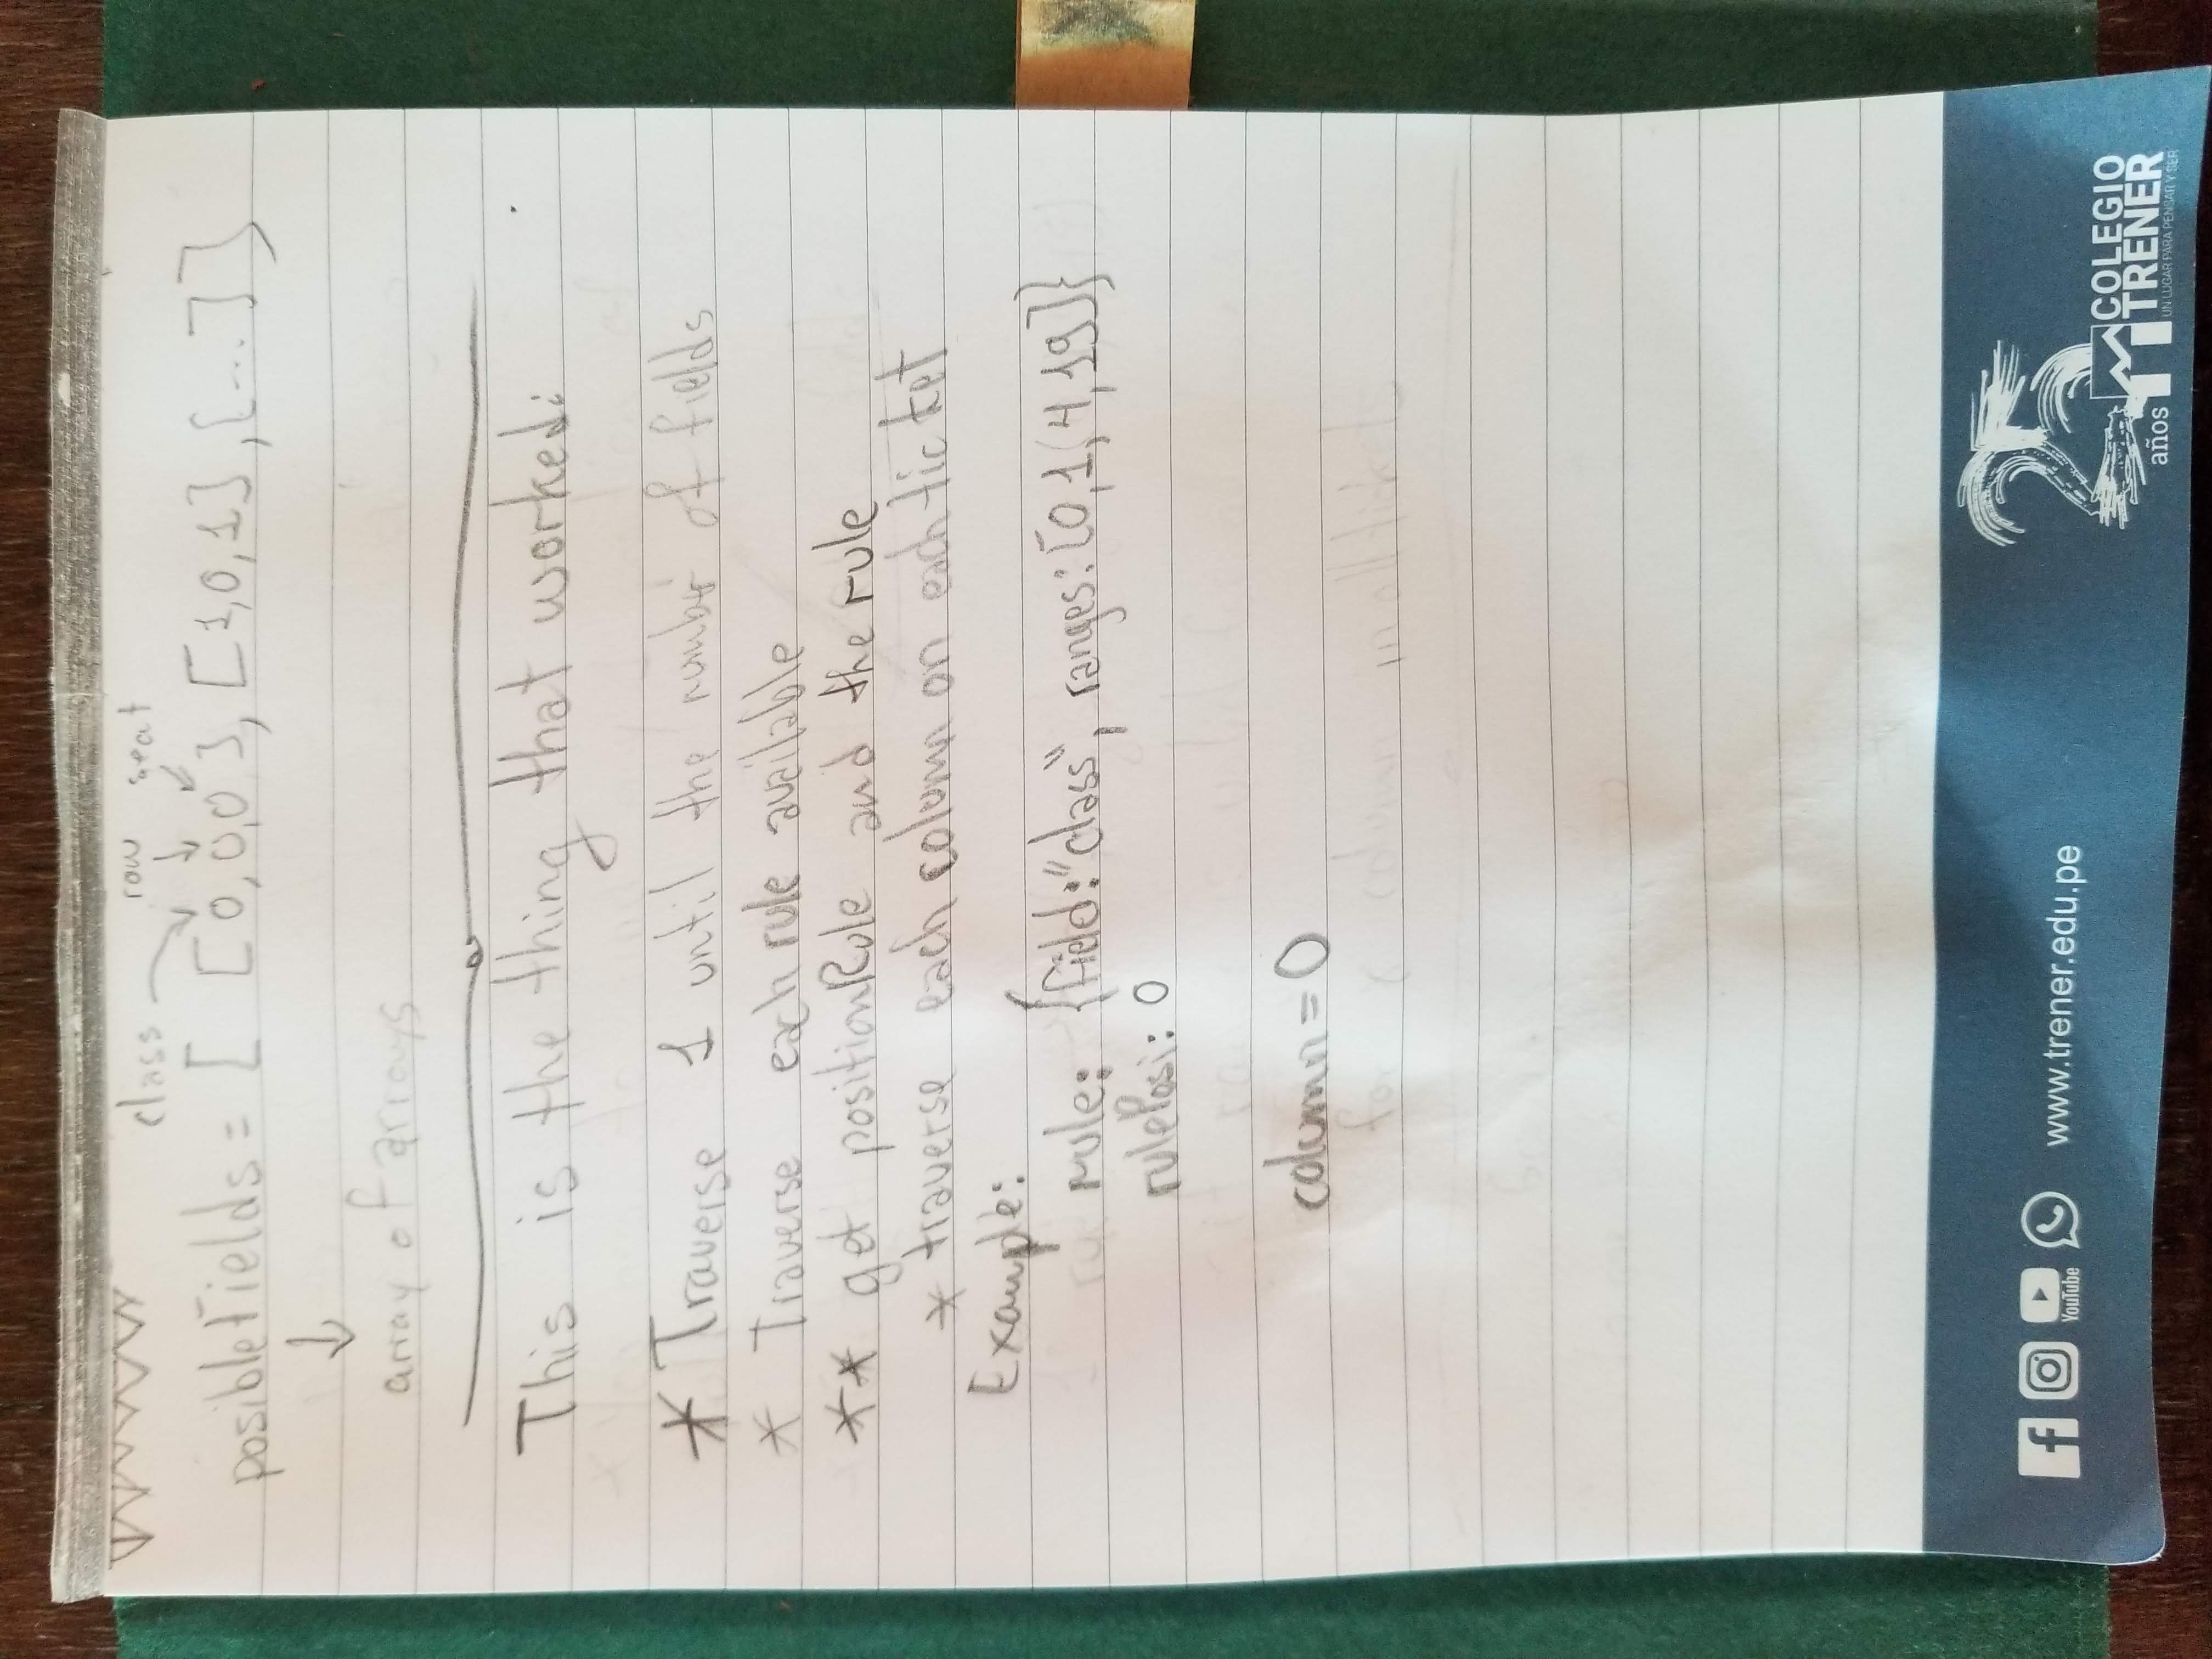 class row seat
posibleFields = [ [0,0,0], [1,0,1], [...] ]
array of arrays
This is the thing that worked:
* Traverse 1 until the number of fields
* Traverse each rule available
** get positionRule and the rule
* traverse each column on each ticket
Example:
rule: {field:"class", ranges:[0,1,4,19]}
rulePosi: 0
column = 0
for column in all tickets
YouTube
www.trener.edu.pe
25
años
COLEGIO
TRENER
UN LUGAR PARA PENSAR Y SER